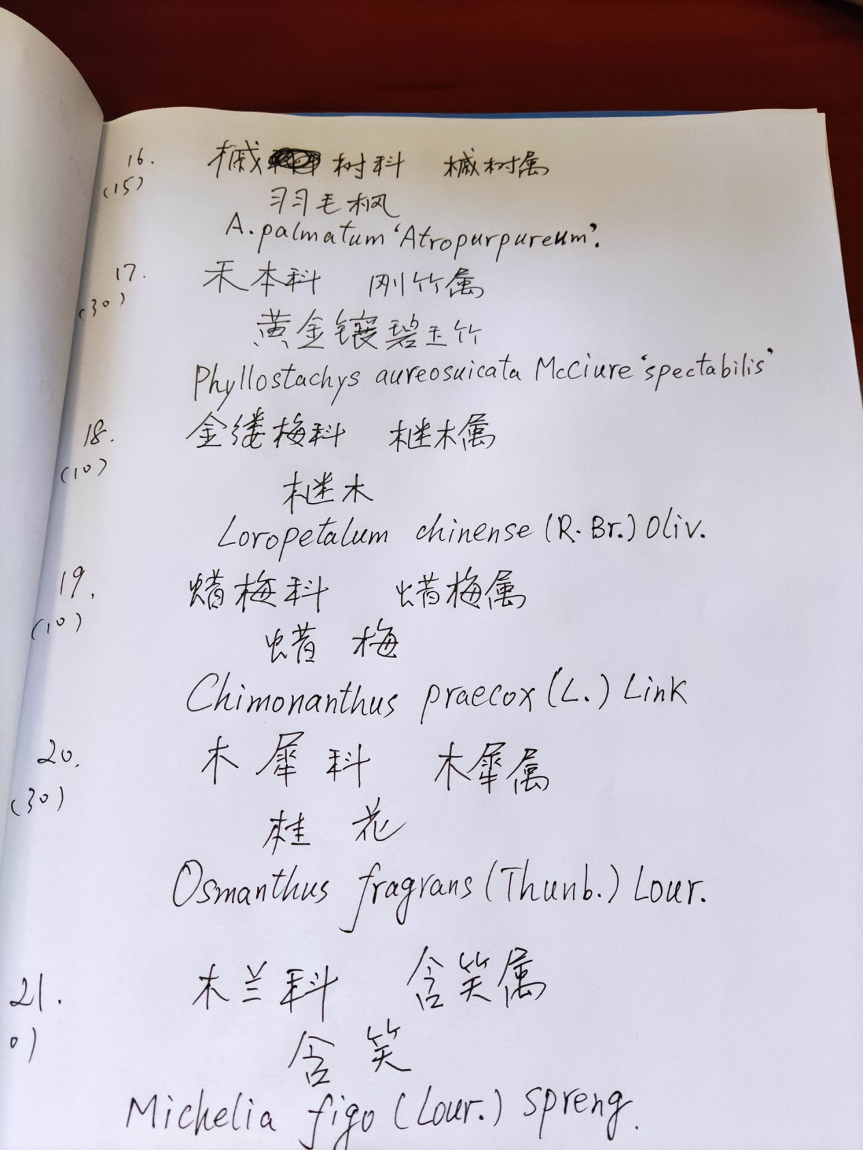 16. 槭树科 槭树属
(15) 羽毛枫
A. palmatum 'Atropurpureum'.
17. 禾本科 刚竹属
(30) 黄金镶碧玉竹
Phyllostachys aureosuicata McCiure 'spectabilis'
18. 金缕梅科 檵木属
(10) 檵木
Loropetalum chinense (R. Br.) Oliv.
19. 蜡梅科 蜡梅属
(10) 蜡梅
Chimonanthus praecox (L.) Link
20. 木犀科 木犀属
(30) 桂花
Osmanthus fragrans (Thunb.) Lour.
21. 木兰科 含笑属
0) 含笑
Michelia figo (Lour.) spreng.